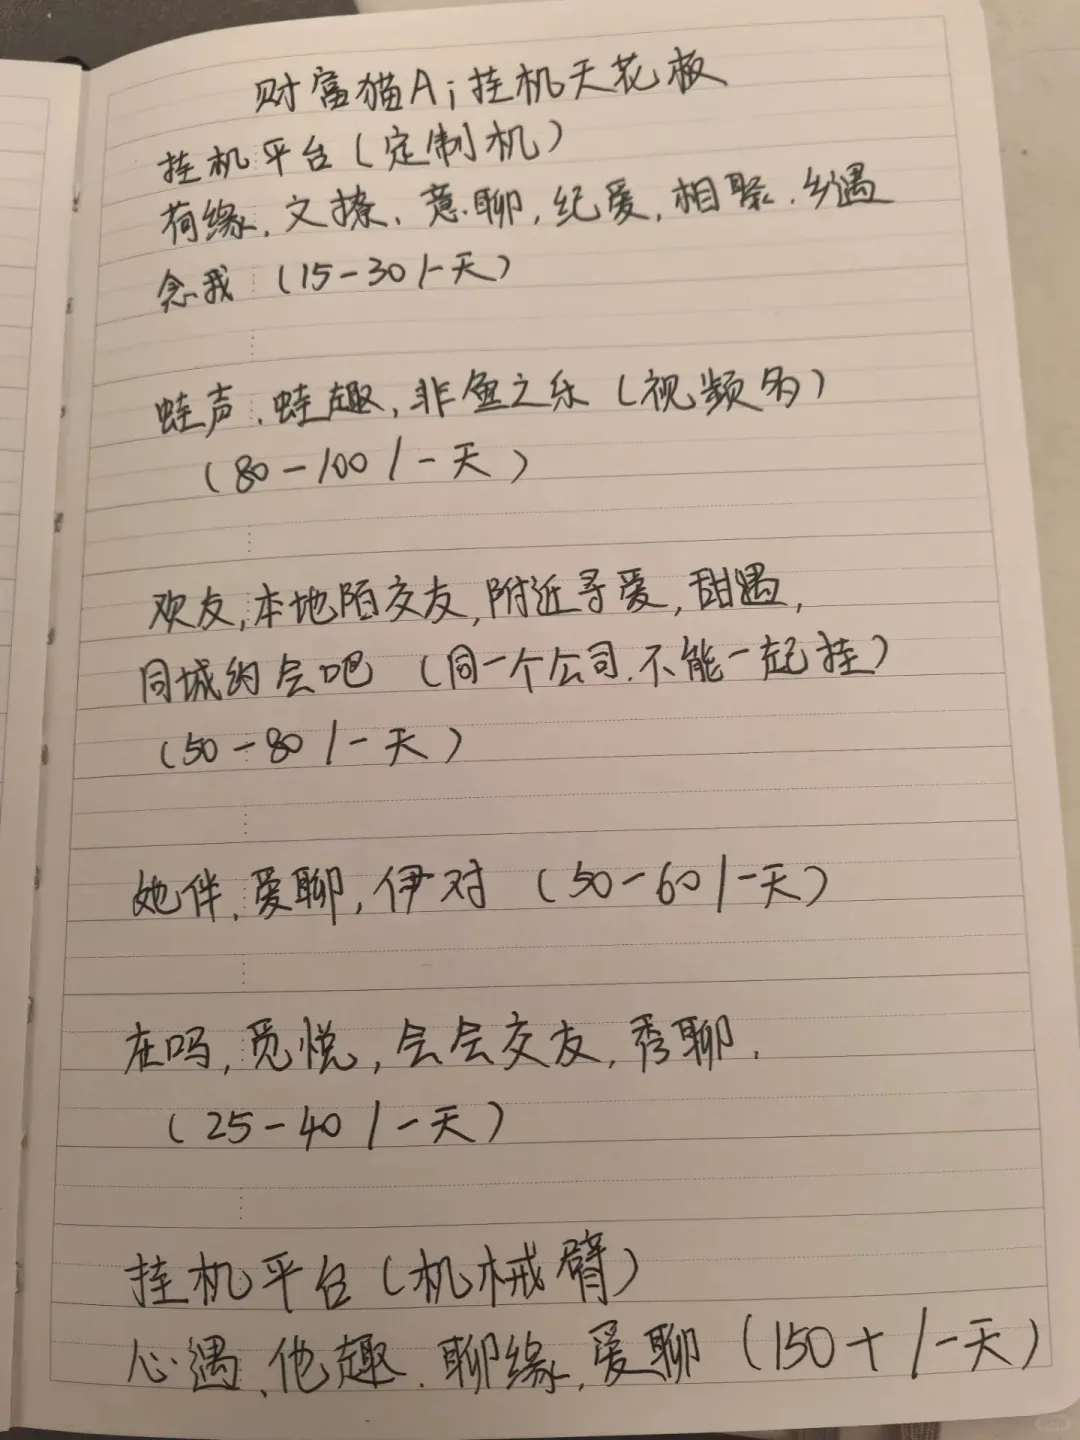 财富猫Ai挂机天花板
挂机平台(定制机)
荷缘、文撩、薏聊,纪爱,相聚、乡遇
念我 (15-30/一天)
蛙声、蛙趣,非鱼之乐(视频多)
(80-100/一天)
欢友,本地陌交友,附近寻爱,甜遇,
同城约会吧 (同一个公司.不能一起挂)
(50-80/一天)
她伴,爱聊,伊对 (50-60/一天)
在吗,觅悦,会会交友,秀聊,
(25-40/一天)
挂机平台(机械臂)
心遇、他趣、聊缘,爱聊(150+/一天)